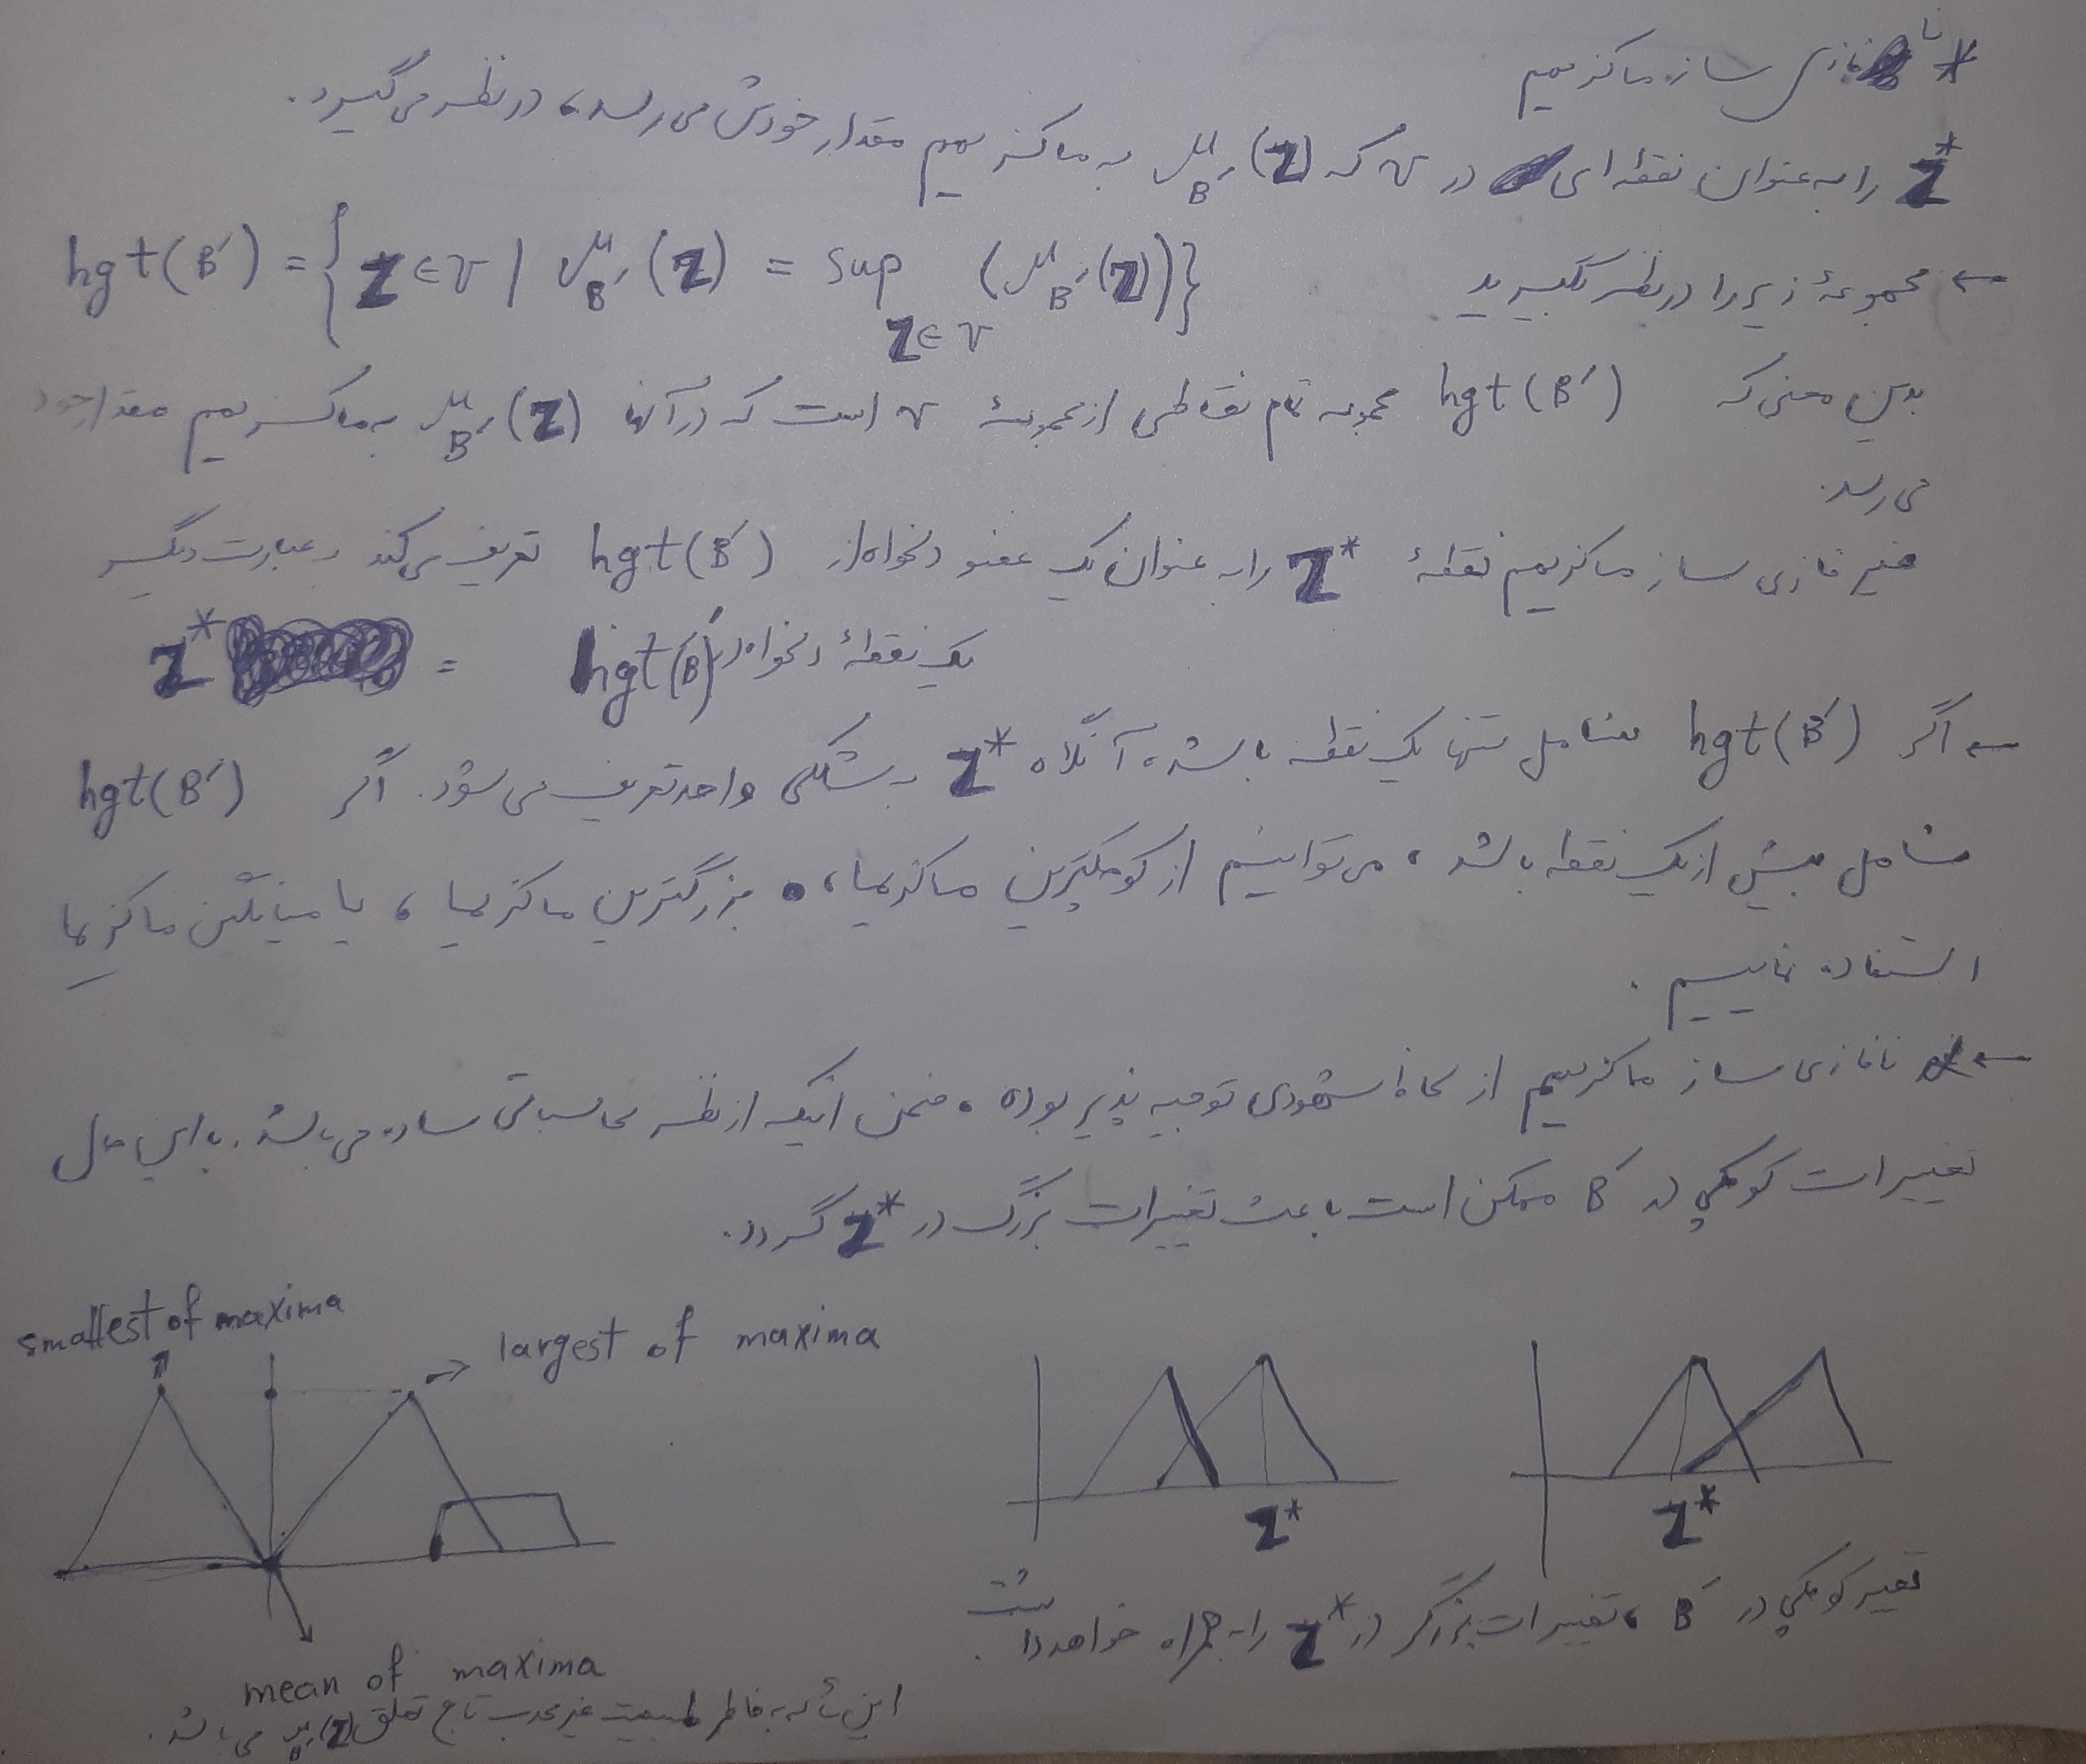 * نافازی ساز ماکزیمم
Z* را به عنوان نقطه ای در V که μB′(Z) به ماکزیمم مقدار خودش می رسد، در نظر می گیرد.
← مجموعهٔ زیر را در نظر بگیرید hgt(B′) = {Z∈V | μB′(Z) = sup (μB′(Z))}
Z∈V
بدین معنی که hgt(B′) مجموعه تمام نقاطی از مجموعهٔ V است که در آنها μB′(Z) به ماکزیمم مقدار خود
می رسد.
غیر فازی ساز ماکزیمم نقطهٔ Z* را به عنوان یک عضو دلخواه از hgt(B′) تعریف می کند به عبارت دیگر
Z* = hgt(B′) یک نقطهٔ دلخواه در
← اگر hgt(B′) شامل تنها یک نقطه باشد، آنگاه Z* به شکلی واحد تعریف می شود. اگر hgt(B′)
شامل بیش از یک نقطه باشد، می توانیم از کوچکترین ماکزیما، بزرگترین ماکزیما، یا میانگین ماکزیما
استفاده نماییم.
← نافازی ساز ماکزیمم از لحاظ شهودی توجیه پذیر بوده، ضمن اینکه از نظر محاسباتی ساده می باشد. با این حال
تغییرات کوچکی در B′ ممکن است باعث تغییرات بزرگ در Z* گردد.
smallest of maxima
largest of maxima
mean of maxima
Z*
Z*
تغییر کوچکی در B′، تغییرات بزرگتر در Z* را به همراه خواهد داشت.
این مسأله به خاطر طبیعت غیر محدب تابع تعلق μB′(Z) می باشد.